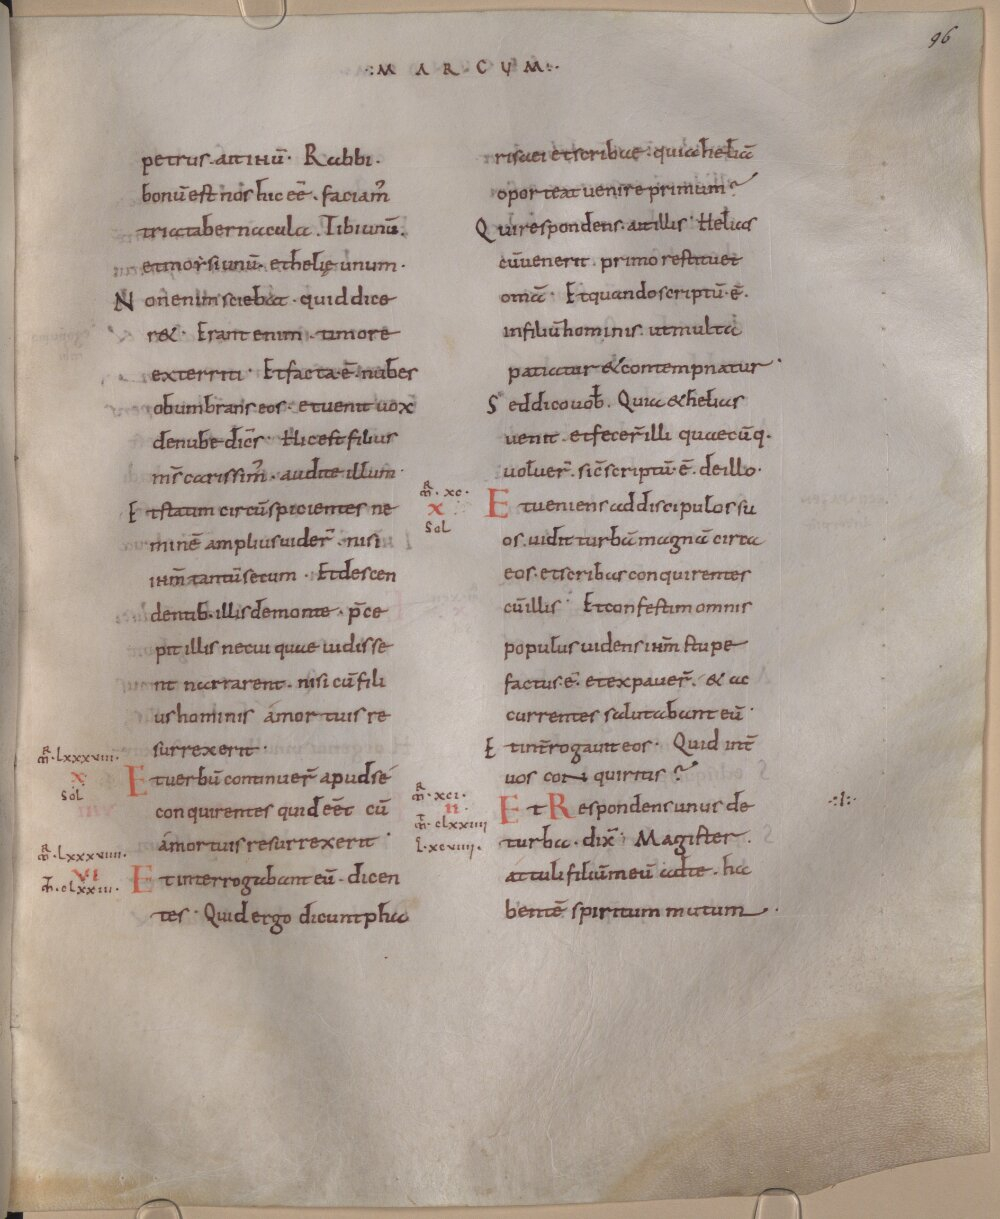 96
·:MARCUM:·
petrus. ait ihū. Rabbi.
bonū est nos hic eē. faciam̄
tria tabernacula. Tibi unū.
et moysi unū. et helię unum.
Non enim sciebat. quid dice
r&. Erant enim. timore
exterriti. Et facta. ē. nubes
obumbrans eos. et uenit uox
de nube dicēs. Hic est filius
m̄s carissim̄. audite illum.
Et statim circūspicientes ne
minē amplius uider̄. nisi
ihm̄ tantū secum. Et descen
dentib. illis de monte. p̄ce
pit illis ne cui quae uidisse
nt narrarent. nisi cū fili
us hominis á mortuis re
surrexerit.
m̄. lxxxviii.
x
Sol
Et uerbū continuer̄ apud sé
conquirentes quid eēt cū
á mortuis resurrexerit.
m̄. lxxxviiii.
VI
m̄. clxxiii.
Et interrogabant eū. dicen
tes. Quid ergo dicunt pha
risaei et scribae. quia heliā
oporteat uenire primum?
Qui respondens. ait illis. Helias
cū uenerit. primo restituet
omā. Et quando scriptū. ē.
in filiū hominis. ut multa
patiatur & contempnatur.
Sed dico uob̄. Quia & helias
uenit. et fecer̄ illi quaecūq.
uoluer̄. sic̄ scriptū. ē. de illo.
m̄. xc.
x
Sol
Et ueniens ad discipulos su
os. uidit turbā magnā circa
eos. et scribas conquirentes
cū illis. Et confestim omnis
populus uidens ihm̄ stupe
factus. ē. et expauer̄. & ac
currentes salutabant eū.
Et int̄rogauit eos. Quid int̄
uos con quiritis?
m̄. xci.
II
m̄. clxxiiii
l. xcviiii.
Et Respondens unus de
turba. dix̄. Magister.
attuli filiū meū ad te. ha
bentē spiritum mutum.
·:l:·